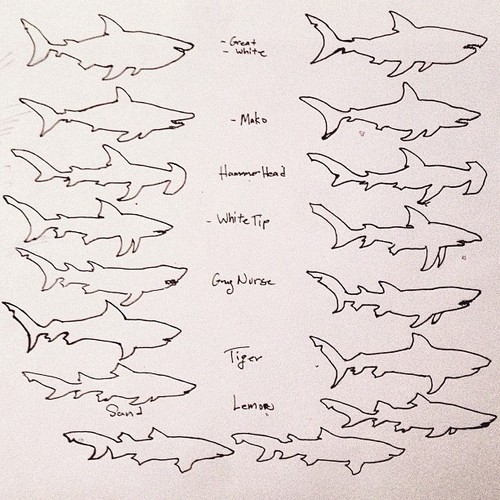 - Great
- White
- Mako
HammerHead
- White Tip
Grey Nurse
Tiger
Sand
Lemon